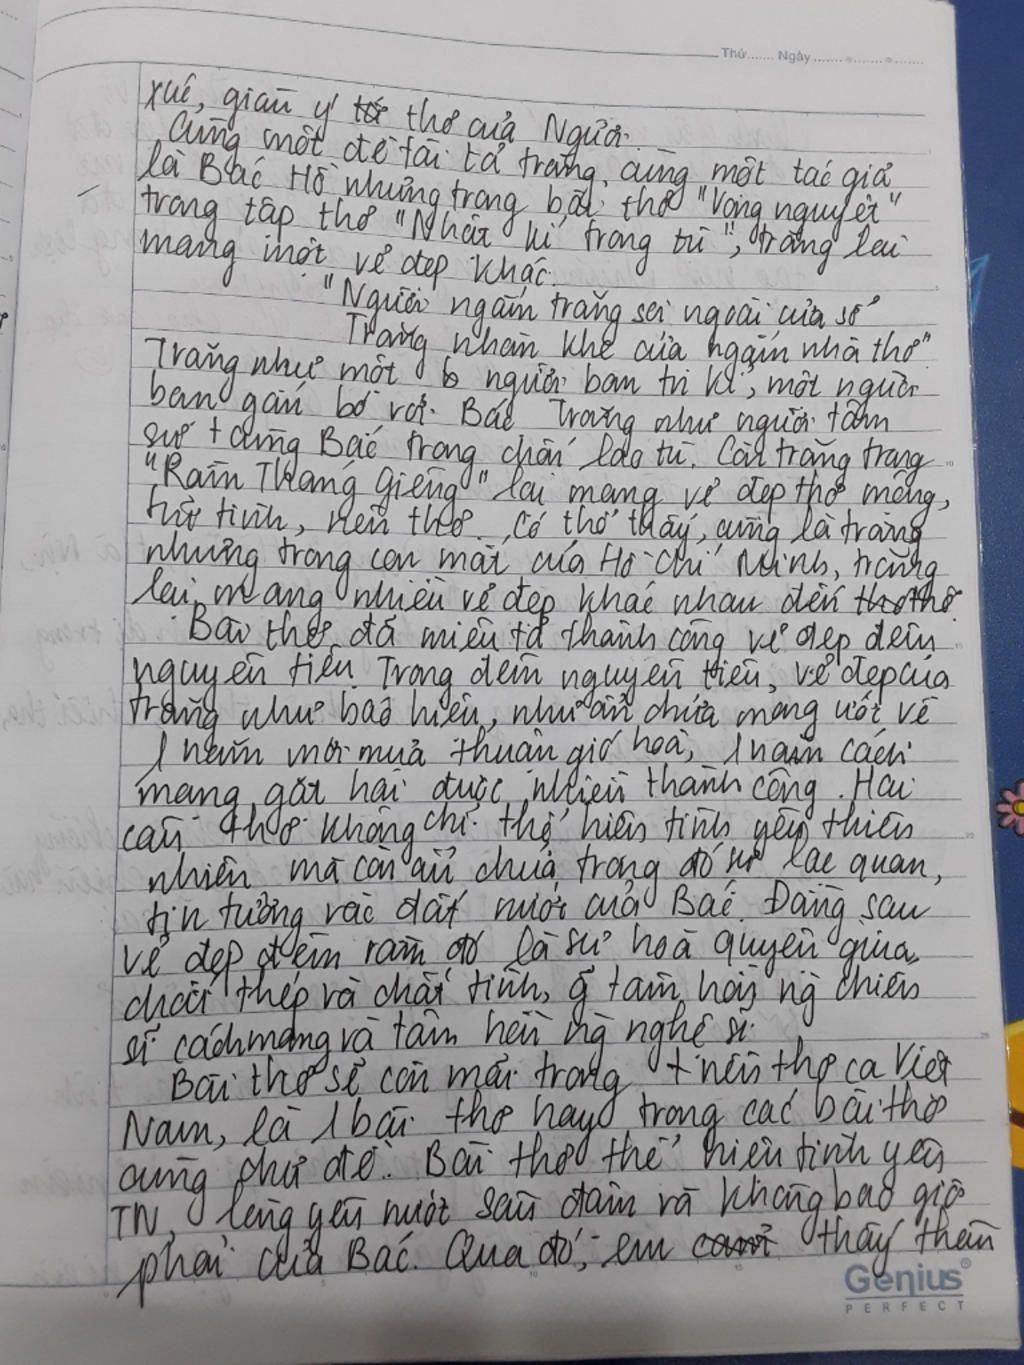 Thứ....... Ngày
xúc, giản ý thơ của Người.
Cùng một đề tài tả trăng, cùng một tác giả
là Bác Hồ nhưng trong bài thơ "Vọng nguyệt"
trong tập thơ "Nhật kí trong tù", trăng lại
mang một vẻ đẹp khác.
"Người ngắm trăng soi ngoài cửa sổ
Trăng nhòm khe cửa ngắm nhà thơ"
Trăng như một người bạn tri kỉ, một người
bạn gắn bó với Bác. Trăng như người tâm
sự cùng Bác trong chốn lao tù. Còn trăng trong
"Rằm Tháng Giêng" lại mang vẻ đẹp thơ mộng,
trữ tình, nên thơ. Có thể thấy, cùng là trăng
nhưng trong con mắt của Hồ Chí Minh, trăng
lại mang nhiều vẻ đẹp khác nhau đến thơ
Bài thơ đã miêu tả thành công vẻ đẹp đêm
nguyên tiêu. Trong đêm nguyên tiêu, vẻ đẹp của
trăng như báo hiệu, như ẩn chứa mong ước về
1 năm mới mưa thuận gió hoà, 1 năm cách
mạng gặt hái được nhiều thành công. Hai
câu thơ không chỉ thể hiện tình yêu thiên
nhiên mà còn ẩn chứa trong đó sự lạc quan,
tin tưởng vào đất nước của Bác. Đằng sau
vẻ đẹp đêm rằm đó là sự hoà quyện giữa
chất thép và chất tình, ý tâm hồn ng chiến
sĩ cách mạng và tâm hồn ng nghệ sĩ.
Bài thơ sẽ còn mãi trong nền thơ ca Việt
Nam, là 1 bài thơ hay trong các bài thơ
cùng chủ đề. Bài thơ thể hiện tình yêu
TN, lòng yêu nước sâu đậm và không bao giờ
phai của Bác. Qua đó, em thấy thêm
Genius
PERFECT